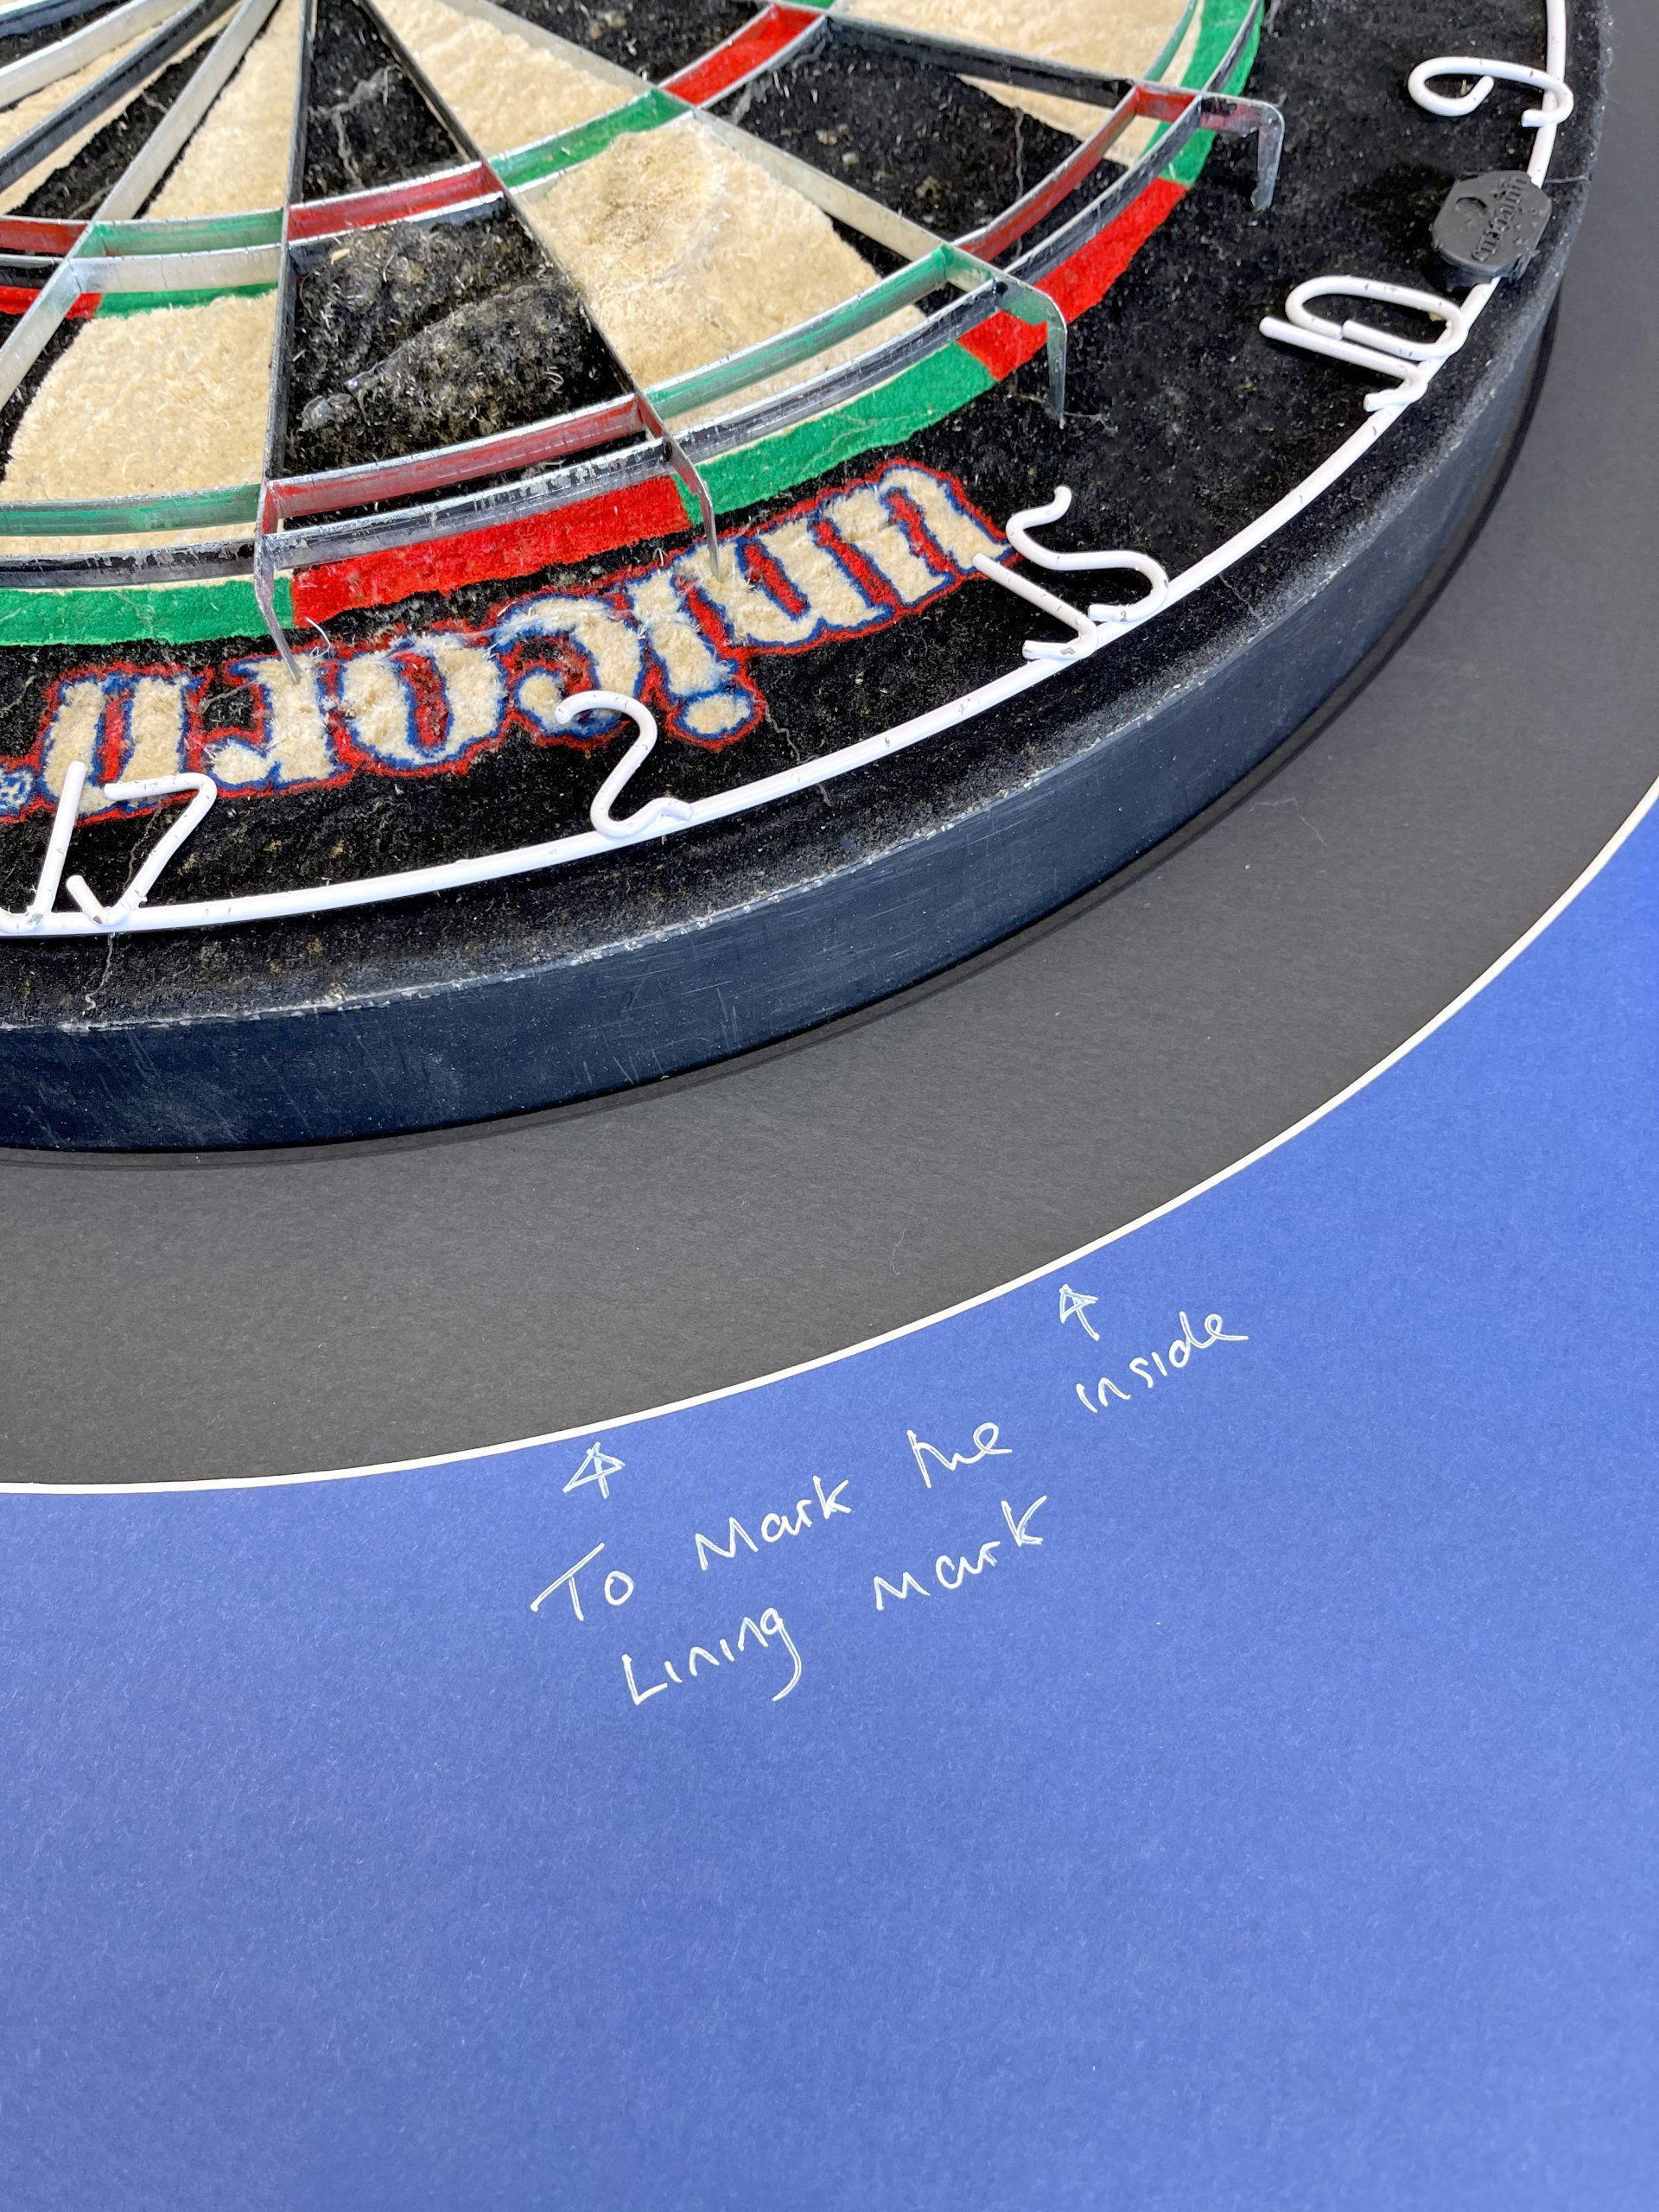 6
unicorn
10
15
unicorn®
2
17
To Mark the inside
Lining Mark